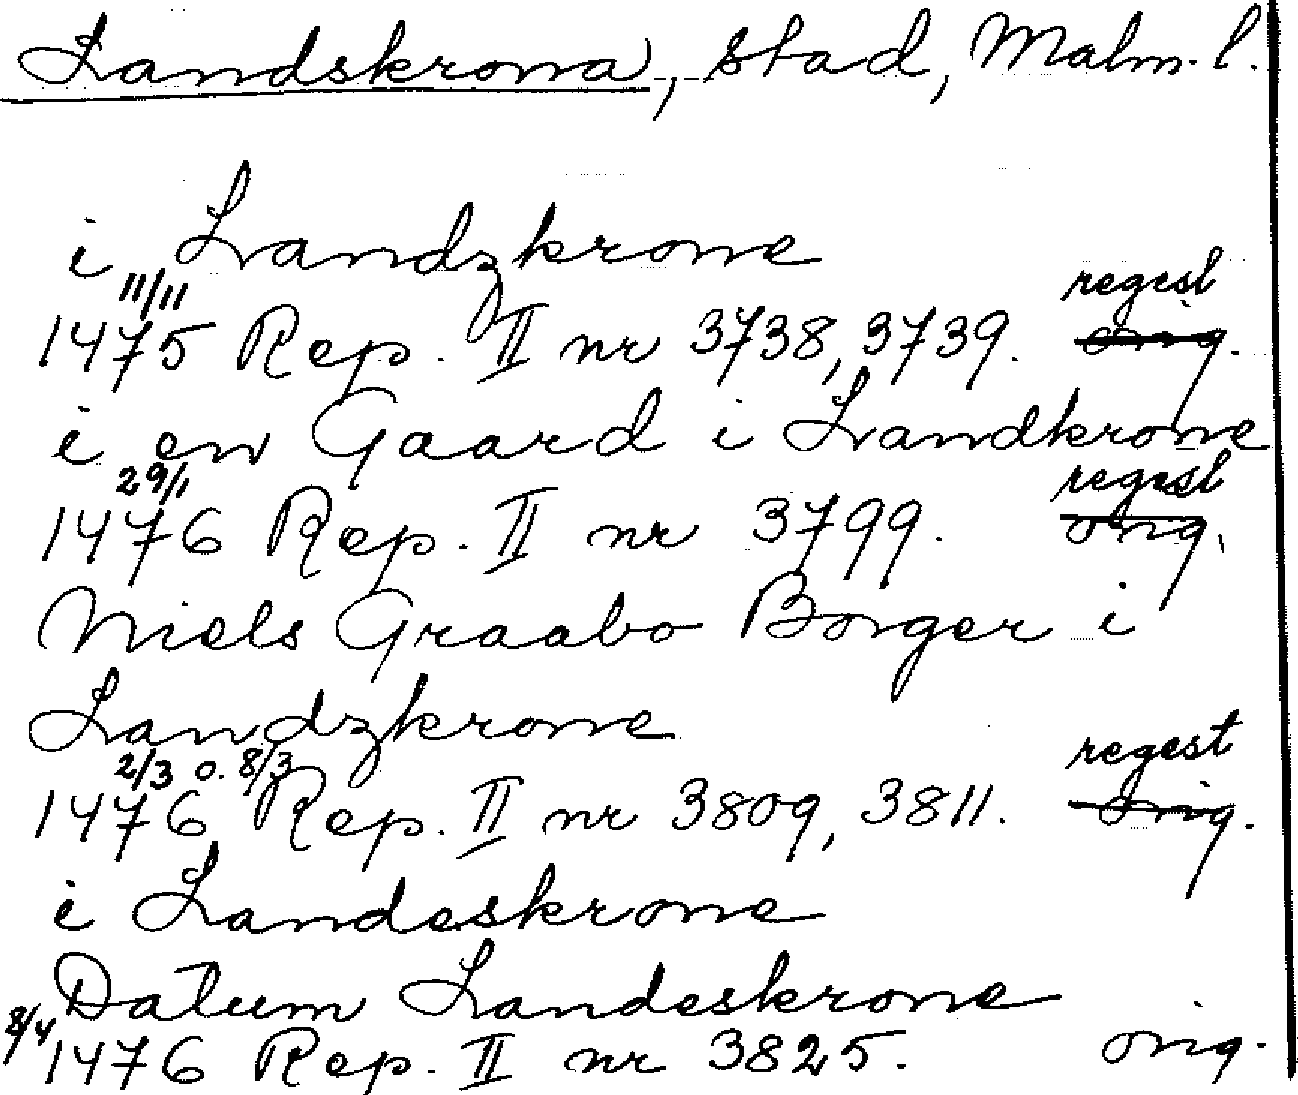 Landskrona, stad, Malm. l.
i Landzkrone
11/11 regest
1475 Rep. II nr 3738, 3739. orig.
i en Gaard i Landkrone
29/1 regest
1476 Rep. II nr 3799. orig.
Niels Graabo Borger i
Landzkrone
2/3 o. 8/3 regest
1476 Rep. II nr 3809, 3811. orig.
i Landeskrone
Datum Landeskrone
8/4 1476 Rep. II nr 3825. orig.